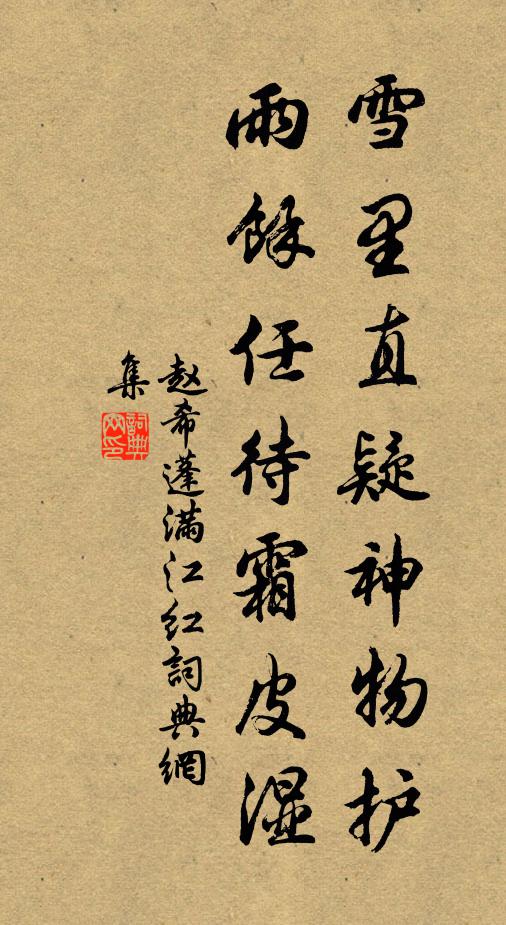 雪里直疑神物护
雨馀任待霜皮湿
赵希蓬满江红詞典網
集
詞典网印